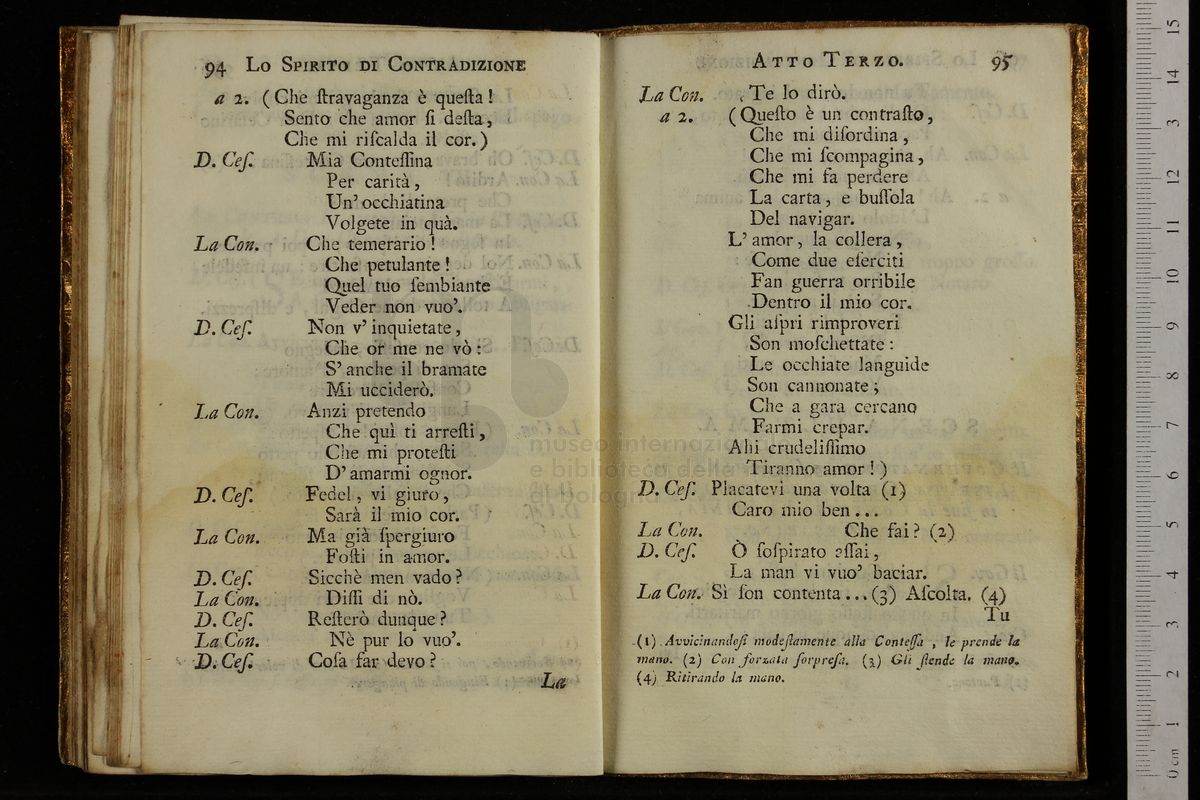 94 Lo Spirito di Contradizione
a 2. (Che ſtravaganza è queſta!
Sento che amor ſi deſta,
Che mi riſcalda il cor.)
D. Ceſ. Mia Conteſſina
Per carità,
Un' occhiatina
Volgete in quà.
La Con. Che temerario!
Che petulante!
Quel tuo ſembiante
Veder non vuo'.
D. Ceſ. Non v' inquietate,
Che or me ne vò:
S' anche il bramate
Mi ucciderò.
La Con. Anzi pretendo
Che quì ti arreſti,
Che mi proteſti
D' amarmi ognor.
D. Ceſ. Fedel, vi giuro,
Sarà il mio cor.
La Con. Ma già ſpergiuro
Foſti in amor.
D. Ceſ. Sicchè men vado?
La Con. Diſſi di nò.
D. Ceſ. Reſterò dunque?
La Con. Nè pur lo vuo'.
D. Ceſ. Coſa far devo?
La
Atto Terzo. 95
La Con. Te lo dirò.
a 2. (Queſto è un contraſto,
Che mi diſordina,
Che mi ſcompagina,
Che mi fa perdere
La carta, e buſſola
Del navigar.
L' amor, la collera,
Come due eſerciti
Fan guerra orribile
Dentro il mio cor.
Gli aſpri rimproveri
Son moſchettate:
Le occhiate languide
Son cannonate;
Che a gara cercano
Farmi crepar.
Ahi crudeliſſimo
Tiranno amor!)
D. Ceſ. Placatevi una volta (1)
Caro mio ben...
La Con. Che fai? (2)
D. Ceſ. Ò ſoſpirato aſſai,
La man vi vuo' baciar.
La Con. Sì ſon contenta...(3) Aſcolta. (4)
Tu
(1) Avvicinandoſi modeſtamente alla Conteſſa, le prende la
mano. (2) Con forzata ſorpreſa. (3) Gli ſtende la mano.
(4) Ritirando la mano.
museo internazionale
e biblioteca della
di bologna
0 cm 1 2 3 4 5 6 7 8 9 10 11 12 13 14 15